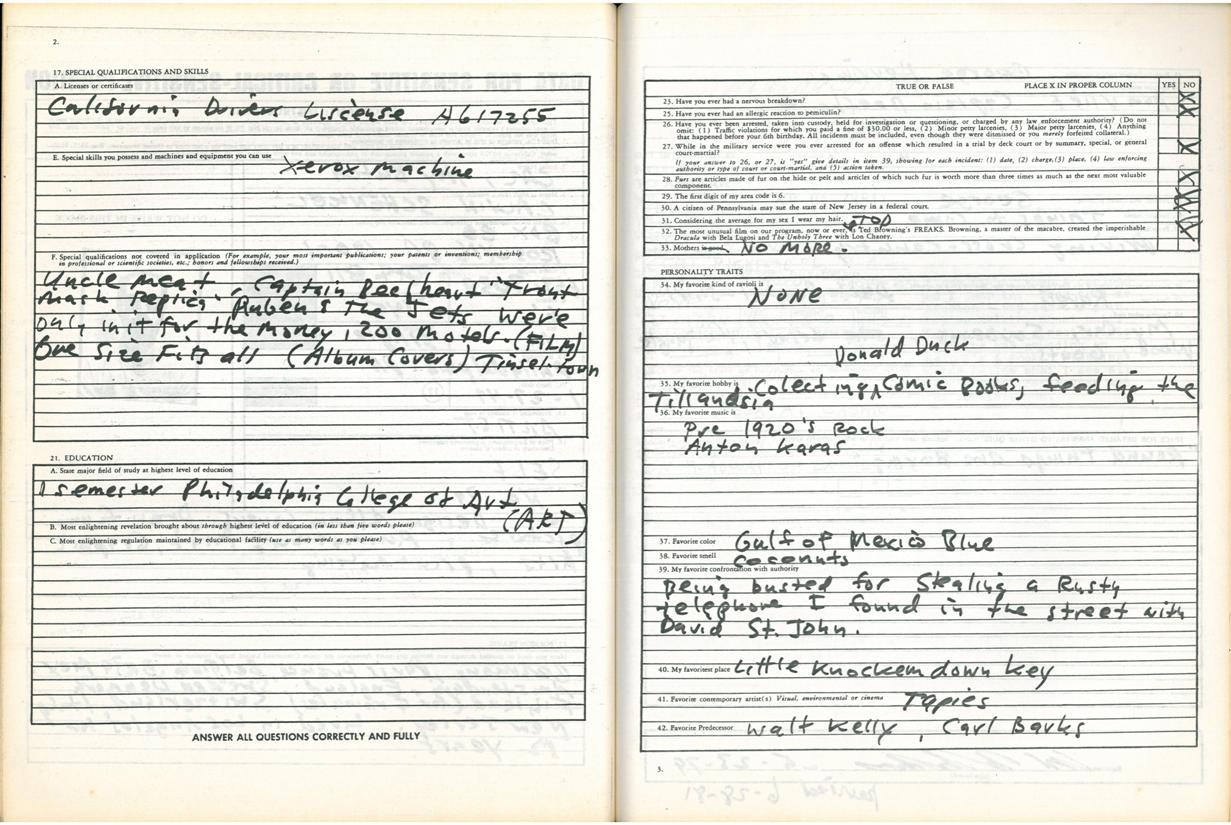 2.
17. SPECIAL QUALIFICATIONS AND SKILLS
A. Licenses or certificates
California Drivers Liscense A617255
E. Special skills you possess and machines and equipment you can use
Xerox machine
F. Special qualifications not covered in application (For example, your most important publications; your patents or inventions; membership
in professional or scientific societies, etc.; honors and fellowships received.)
Uncle meat, Captain Beefheart "Trout
mask Replica. Ruben & The Jets were
only in it for the money, 200 motels. (FiLM)
One Size Fits all (Album Covers) Tinsel-Town
21. EDUCATION
A. State major field of study at highest level of education
1 semester Philidelphia Cllege of Art
(ART)
B. Most enlightening revelation brought about through highest level of education (in less than five words please)
C. Most enlightening regulation maintained by educational facility (use as many words as you please)
ANSWER ALL QUESTIONS CORRECTLY AND FULLY
TRUE OR FALSE PLACE X IN PROPER COLUMN YES NO
23. Have you ever had a nervous breakdown? X
25. Have you ever had an allergic reaction to pemiculin? X
26. Have you ever been arrested, taken into custody, held for investigation or questioning, or charged by any law enforcement authority? (Do not
omit: (1) Traffic violations for which you paid a fine of $30.00 or less, (2) Minor petty larcenies, (3) Major petty larcenies, (4) Anything
that happened before your 6th birthday. All incidents must be included, even though they were dismissed or you merely forfeited collateral.)
27. While in the military service were you ever arrested for an offense which resulted in a trial by deck court or by summary, special, or general
court-martial? X
If your answer to 26, or 27, is "yes" give details in item 39, showing for each incident: (1) date, (2) charge, (3) place, (4) law enforcing
authority or type of court or court-martial, and (5) action taken.
28. Furs are articles made of fur on the hide or pelt and articles of which such fur is worth more than three times as much as the next most valuable
component. X
29. The first digit of my area code is 6. X
30. A citizen of Pennsylvania may sue the state of New Jersey in a federal court. X
31. Considering the average for my sex I wear my hair. TOD X
32. The most unusual film on our program, now or ever, is Ted Browning's FREAKS. Browning, a master of the macabre, created the imperishable
Dracula with Bela Lugosi and The Unholy Three with Lon Chaney. X
33. Mothers NO MORE.
PERSONALITY TRAITS
34. My favorite kind of ravioli is
NONE
Donald Duck
35. My favorite hobby is Colecting Comic Books, feeding the
Tillandsia
36. My favorite music is
Pre 1920's Rock
Anton Karas
37. Favorite color Gulf of Mexico Blue
38. Favorite smell Coconuts
39. My favorite confrontation with authority
Being busted for Stealing a Rusty
telephone I found in the street with
David St. John.
40. My favoritest place Little Knockem down key
41. Favorite contemporary artist(s) Visual, environmental or cinema Tapies
42. Favorite Predecessor Walt Kelly, Carl Barks
3.